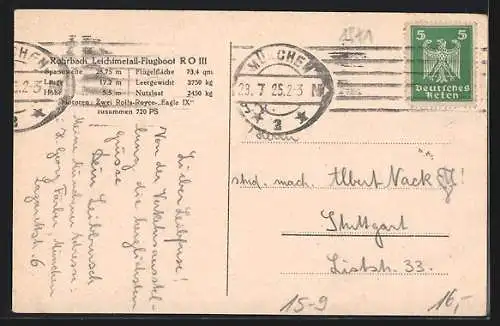 Rohrbach Leichtmetall-Flugboot R O III
Spannweite 28,75 m Flügelfläche 73,4 qm
Länge 17,2 m Leergewicht 3750 kg
Höhe 5,5 m Nutzlast 2450 kg
Motoren: Zwei Rolls-Royce-„Eagle IX"
zusammen 720 PS
MÜNCHEN
25.2-3
2
MÜNCHEN
23. 7 25. 2-3 N
2
5 5
Deutsches
Reich
Lieber Leibfuxe!
Von der Verkehrsausstel-
lung die herzlichsten
Grüsse
Dein Leibbursch
Meine Münchener Adresse:
Georg München
6
stud. mach. Albert Nack
Stuttgart
Liststr. 33.
15-9
16,-